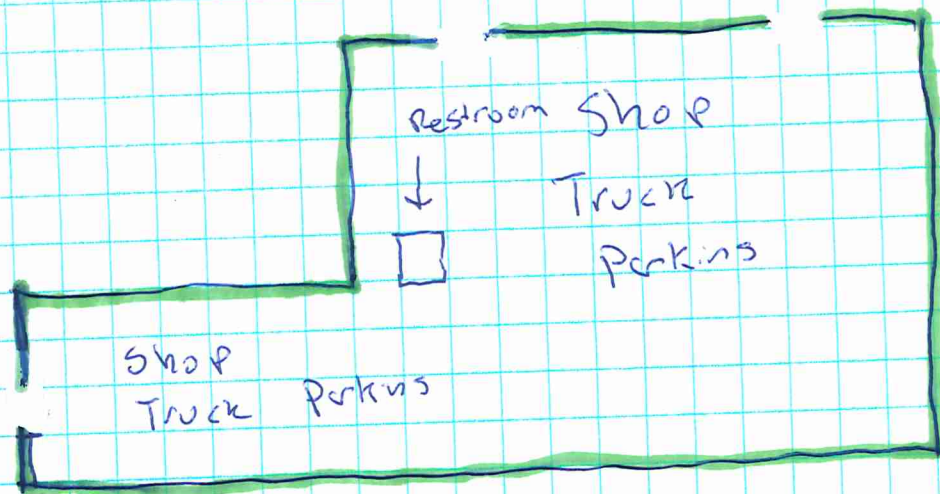 Restroom Shop
Truck
Parking
Shop
Truck Parking